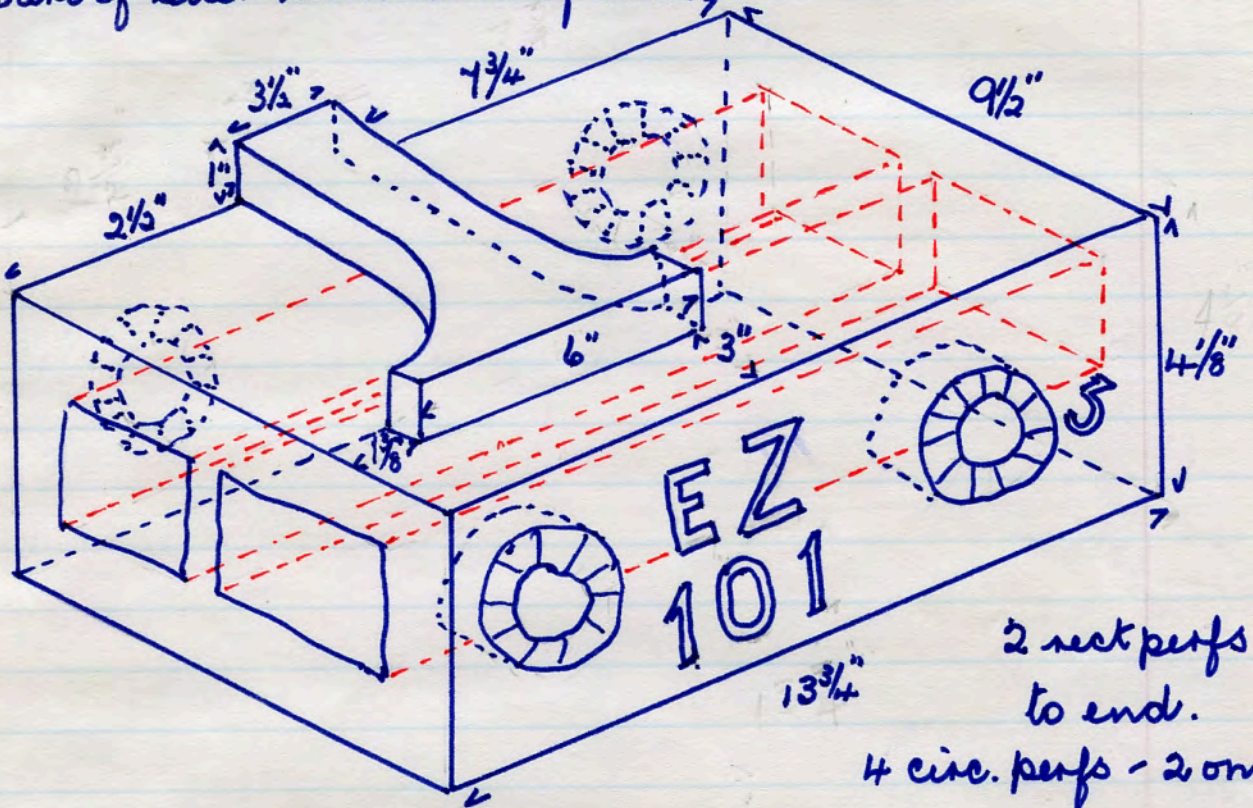 of
3½"
7¾"
9½"
1"
2½"
6"
3"
4⅛"
1⅜"
3
EZ
101
13¾"
2 rect perfs
to end.
4 circ. perfs - 2 on